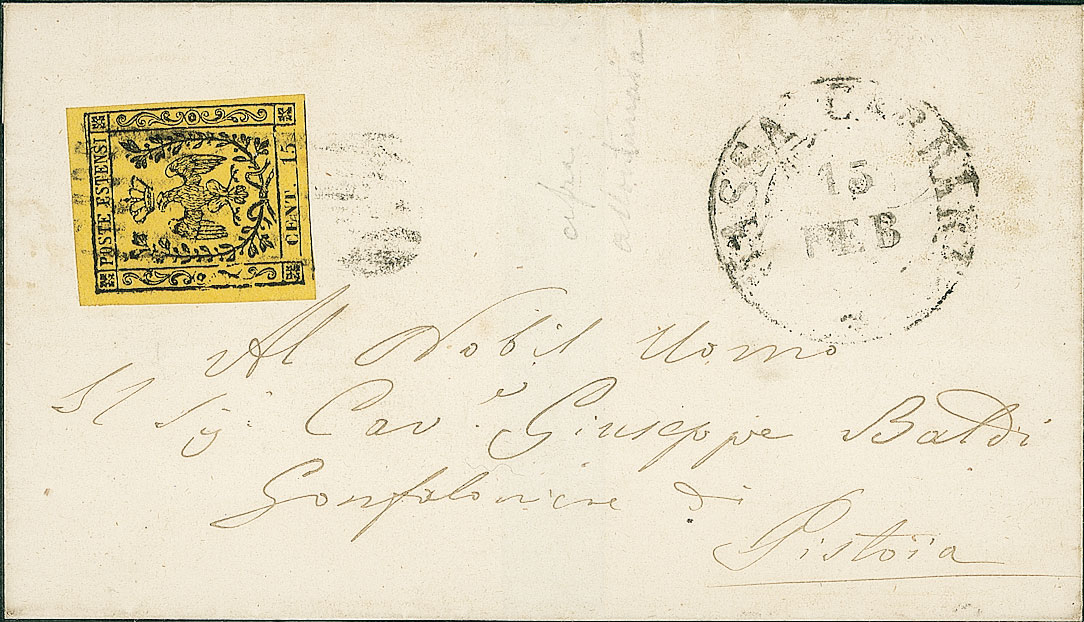 POSTE ESTENSI
CENT. 15
MASSA CARRARA
15
FEB
Al Nobil Uomo
Il Sig. Cav.e Giuseppe Baldi
Gonfaloniere di
Pistoia